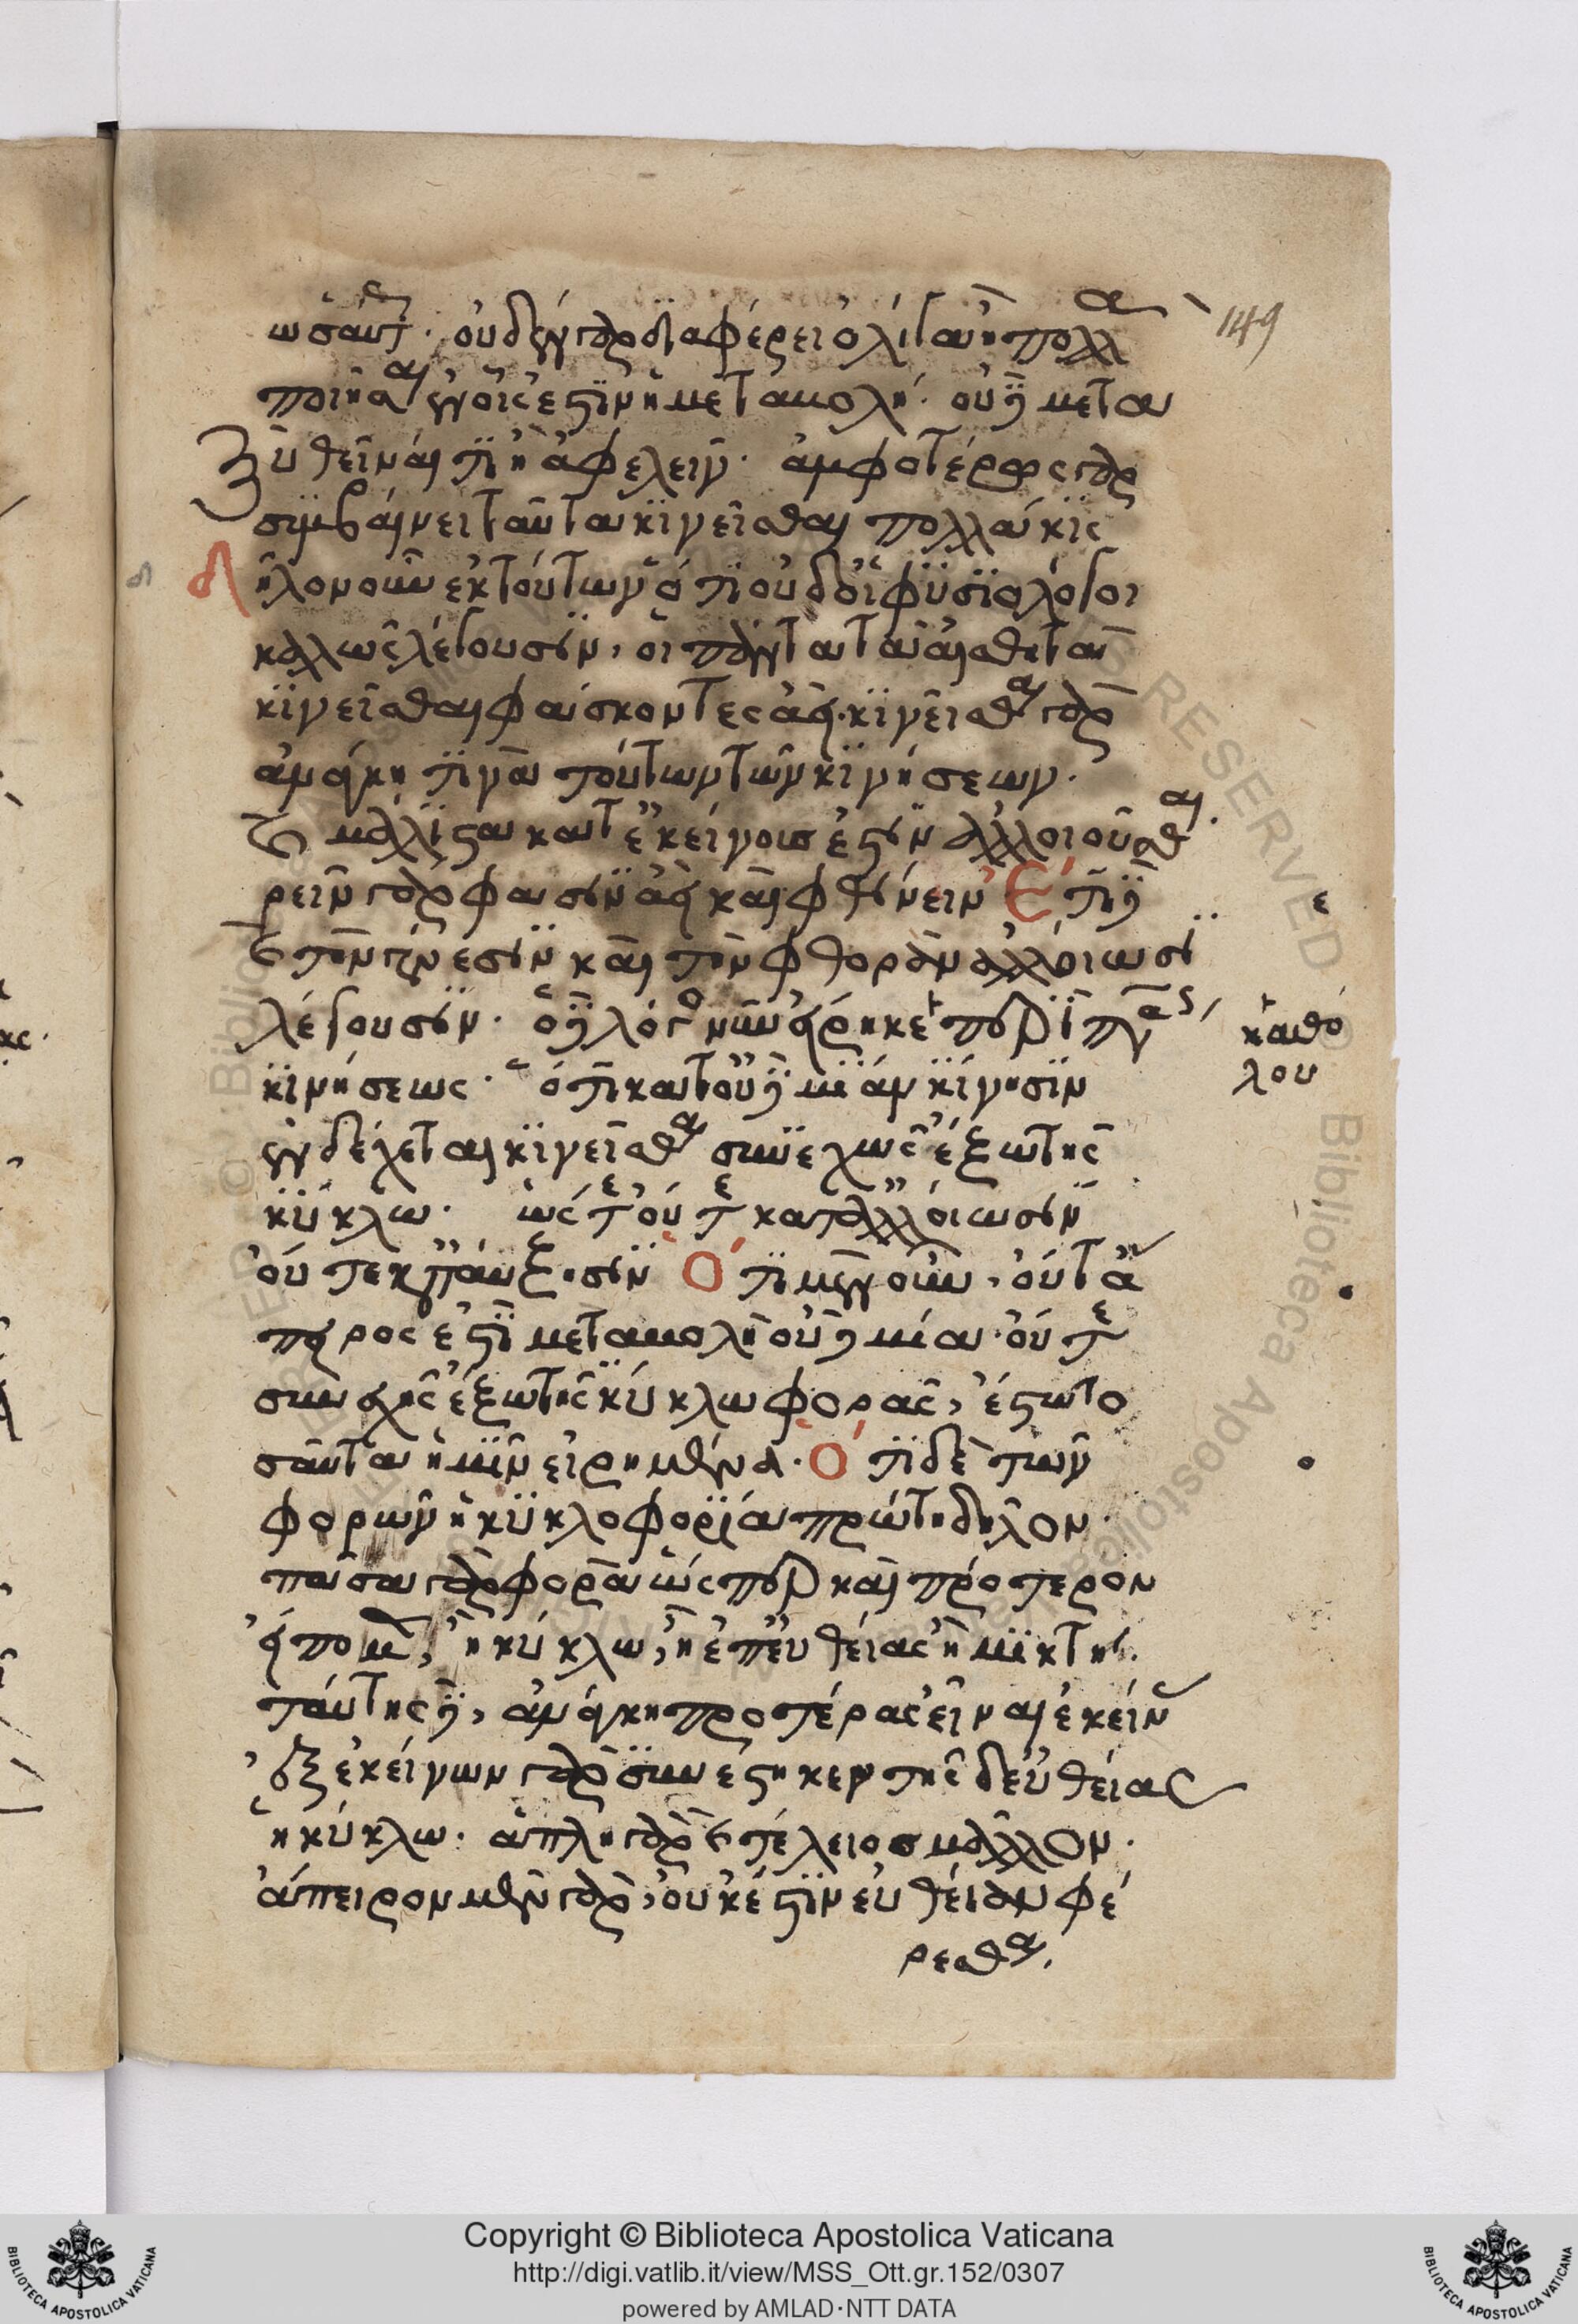 149
ὡσαύτως· οὐδὲν γὰρ διαφέρει ὀλίγα ἢ πολλὰ
ποιῆσαι ἐν οἷς ἐστὶν ἡ μεταβολή· οὐδὲ μετα
ξὺ θεῖναί τι ἢ ἀφελεῖν· ἀμφοτέρως γὰρ
συμβαίνει ταῦτα κινεῖσθαι πολλάκις
δ
Δῆλον οὖν ἐκ τούτων ὅτι οὐδ' οἱ φυσιολόγοι
καλῶς λέγουσιν, οἱ πάντα τὰ αἰσθητὰ
κινεῖσθαι φάσκοντες ἀεί· κινεῖσθαι γὰρ
ἀνάγκη τινὰ τούτων τῶν κινήσεων·
καὶ μάλιστα κατ' ἐκείνοις ἐστὶν ἀλλοιοῦσθαι·
ρεῖν γὰρ φασὶν ἀεὶ καὶ φθίνειν Ἔτι δὲ
ε
καὶ τὴν γένεσιν καὶ τὴν φθορὰν ἀλλοίωσιν
λέγουσιν· ὁ δὲ λόγος νῦν εἴρηκε περὶ πάσης
καθό
λου
κινήσεως· ὅτι κατ' οὐδεμίαν κίνησιν
ἐνδέχεται κινεῖσθαι συνεχῶς ἔξω τῆς
κύκλω· ὥστε οὔτε κατ' ἀλλοίωσιν
οὔτε κατ' αὔξησιν Ὅτι μὲν οὖν, οὔτ' ἄ
πειρος ἐστὶ μεταβολὴ οὐδεμία· οὔτε
συνεχὴς ἔξω τῆς κύκλω φορᾶς, ἔστω το
σαῦτα ἡμῖν εἰρημένα· Ὅτι δὲ τῶν
φορῶν ἡ κυκλοφορία πρώτη δῆλον·
πᾶσα γὰρ φορὰ ὥσπερ καὶ πρότερον
εἴπομεν, ἢ κύκλω, ἢ ἐπ' εὐθείας ἢ μικτή·
ταύτης δὲ, ἀνάγκη προτέρας εἶναι ἐκείνας
ἐξ ἐκείνων γὰρ συνέστηκεν τῆς δ' εὐθείας
ἡ κύκλω· ἁπλῆ γὰρ καὶ τέλειος μᾶλλον·
ἄπειρον μὲν γὰρ, οὐκ ἔστιν εὐθεῖαν φέ
ρεσθαι,
Copyright © Biblioteca Apostolica Vaticana
http://digi.vatlib.it/view/MSS_Ott.gr.152/0307
powered by AMLAD·NTT DATA
BIBLIOTECA APOSTOLICA VATICANA
BIBLIOTECA APOSTOLICA VATICANA